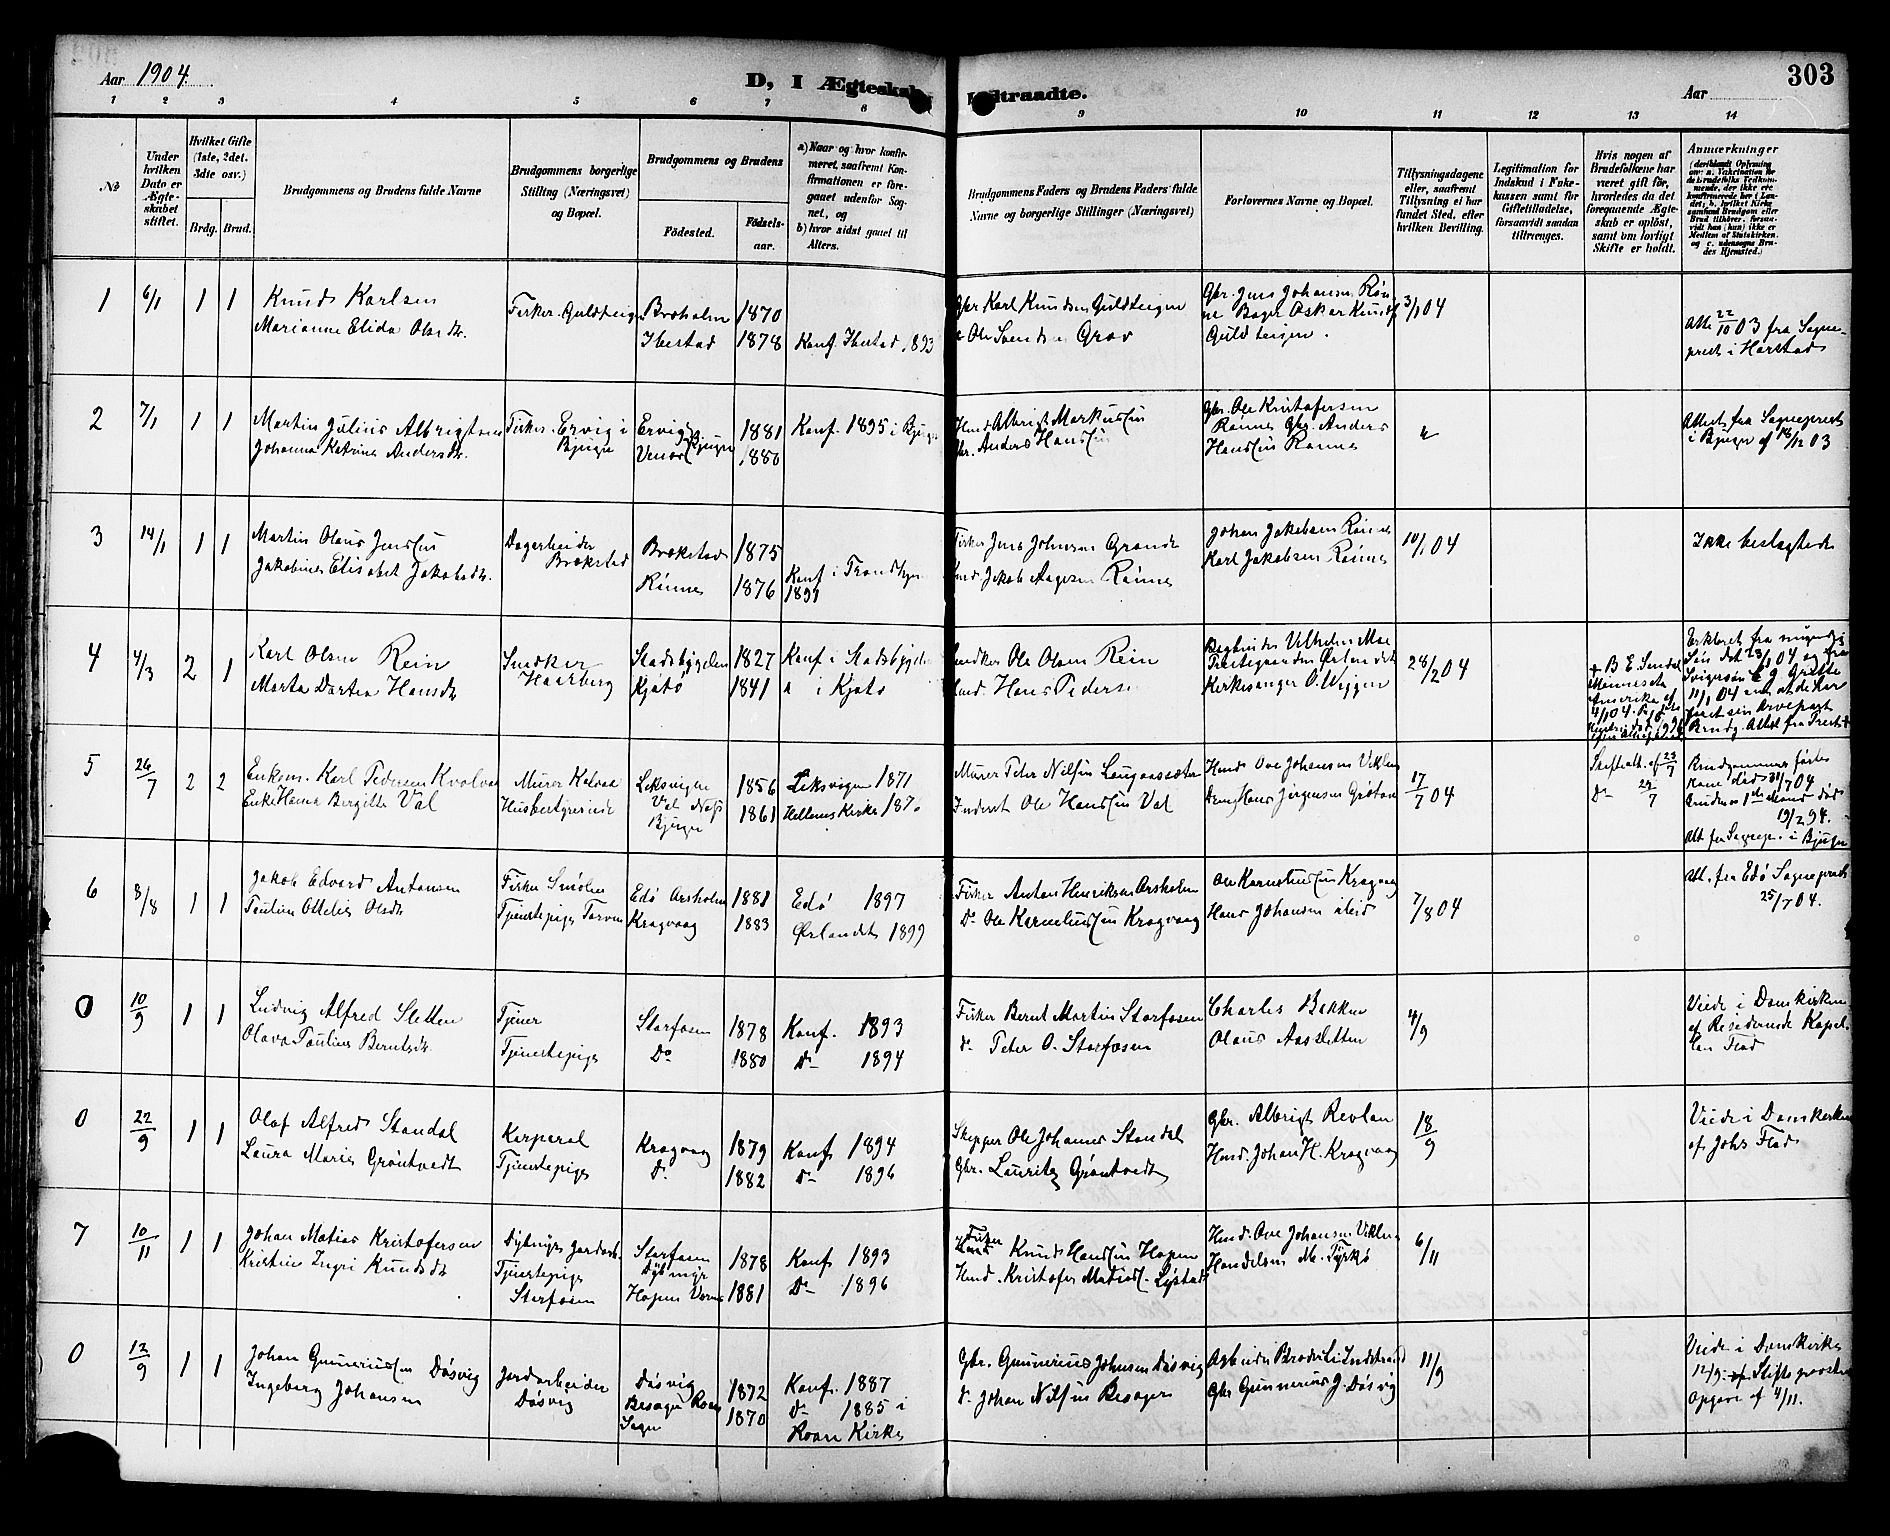 Aar 1904.
D, I Ægteskab Indtraadte.
Aar
303
1 2 3 4 5 6 7 8 9 10 11 12 13 14
No
Under hvilken Dato er Ægteskabet stiftet.
Hvilket Gifte (1ste, 2det, 3die osv.)
Brdg. Brud.
Brudgommens og Brudens fulde Navne
Brudgommens borgerlige Stilling (Næringsvei) og Bopæl.
Brudgommens og Brudens
Fødested.
Fødselsaar.
a) Naar og hvor konfirmeret, saafremt Konfirmationen er foregaaet udenfor Sognet, og
b) hvor sidst gaaet til Alters.
Brudgommens Faders og Brudens Faders fulde Navne og borgerlige Stillinger (Næringsvei)
Forlovernes Navne og Bopæl.
Tillysningsdagene eller, saafremt Tillysning ei har fundet Sted, efter hvilken Bevilling.
Legitimation for Indskud i Enkekassen samt for Giftetilladelse, forsaavidt saadan tiltrænges.
Hvis nogen af Brudefolkene har været gift før, hvorledes da det foregaaende Ægteskab er opløst, samt om lovligt Skifte er holdt.
Anmærkninger
1 6/1 1 1
Knud Karlsen
Marianne Elida Olsdt.
Fisker. Guldteigen
Broholm 1870
Ibestad 1878 Konf. Ibestad 1893
Gbr Karl Knudsen Guldteigen
Ole Svendsen Grov
Gbr. Jens Johansen Rønne
Oskar Knuds
Guldteigen.
3/1 04
Att. 22/10 03 fra Sogneprest i Harstad
2 7/1 1 1
Martin Julius Albrigtsen
Johanna Katrine Andersdt.
Fisker. Ervig i Bjugn
Ervig 1881 Konf. 1895 i Bjugn
Bjugn 1880
Husm. Albrigt Markussen
Gbr. Anders Hanssen
Gbr. Ole Kristofersen
Rønne Gbr. Anders
Hanssen Rønne
Attest fra Sogneprest i Bjugn af 18/12 03
3 14/1 1 1
Martin Olaus Jenssen
Jakobine Elisabet Jakobsdt.
Dagarbeider
Brækstad
Brækstad 1875
Rønne 1876 Konf i Trondhjem 1891
Fisker Jens Johnsen Grande
Husm. Jakob Aagesen Rønne
Johan Jakobsen Rønne
Karl Jakobsen Rønne
10/1 04
Ikke beslægtede
4 4/3 2 1
Karl Olsen Rein
Marta Dortea Hansdt.
Snedker
Haarberg
Stadsbygden 1827 Konf i Stadsbygden
Kjøtø 1841 i Kjøtø
Snedker Ole Olsen Rein
Husm. Hans Pedersen
Bogbinder Vilhelm Moe
Prestegaarden Ørlandet
Kirkesanger O. Wiggen
28/2 04
5 24/7 2 2
Enkem. Karl Petersen Kvolvaa
Enke Hanna Bergitte Val
Murer
Husbestyrerinde
Leksvigen 1856 Leksvigen 1871
Val Næs
Bjugn 1861
Murer Peter Nilsen Langaassæter
Inderst Ole Hanssen Val
Husm. Ove Johansen Viklem
Hans Jørgensen Grøtan
17/7 04
Skifteatt. af 23/7
Do 24/7
Att fra Sognepr. i Bjugn
6 8/8 1 1
Jakob Edvard Antonsen
Pauline Ottelie Olsdt
Fisker Smølen
Tjenestepige
Edø Arsholm 1881 Edø 1897
Kragvaag 1883 Ørlandet 1899
Fisker Anton Henriksen Arsholm
Do Ole Korneliussen Kragvaag
Ole Korneliussen Kragvaag
Hans Johansen ibid
7/8 04
Att. fra Edø Sogneprest
25/7 04.
0 10/9 1 1
Ludvig Alfred Sletten
Olava Pauline Berntsdt.
Tjener
Tjenestepige
Storfosen 1878 Konf. 1893
Do 1880 Do 1894
Fisker Bernt Martin Storfosen
Do Peter O. Storfosen
Charles Bakken
Olaus Aasletten
4/9
Viede i Domkirken af Residerende Kapellan Flod
0 22/9 1 1
Olaf Alfred Standal
Laura Marie Grøntvedt
Korporal
Tjenestepige
Kragvaag 1879 Konf 1894
Do 1882 Do 1896
Skipper Ole Johannes Standal
Gbr. Lauritz Grøntvedt
Gbr. Albrigt Revlan
Husm. Johan H. Kragvaag
18/9
Viede i Domkirken af Johs Flod
7 10/11 1 1
Johan Matias Kristofersen
Kristine Ingri Knudsdt
Tjenestepige
Storfosen
Storfosen 1878 Konf 1893
Hopen 1881 Do 1896
Fisker Knud Hanssen Hopen
Husm. Kristofer Matiass. Lystad
Husm. Ove Johansen Viklem
Handelsm. M. Tyskø
6/11
0 12/9 1 1
Johan Gunneriussen Døsvig
Ingeborg Johansen
Jordarbeider
Døsvig
Døsvig 1872 Konf. 1887
Besager Roan Sogn 1870 Do 1885 i Roan Kirke
Gbr. Gunnerius Johnsen Døsvig
Do Johan Nilsen Besager
Arbeider Brodtli Indstrand
Gbr Gunnerius J. Døsvig
11/9
Viede i Domkirken 12/9 Stiftsprovsten Opgave af 4/11.